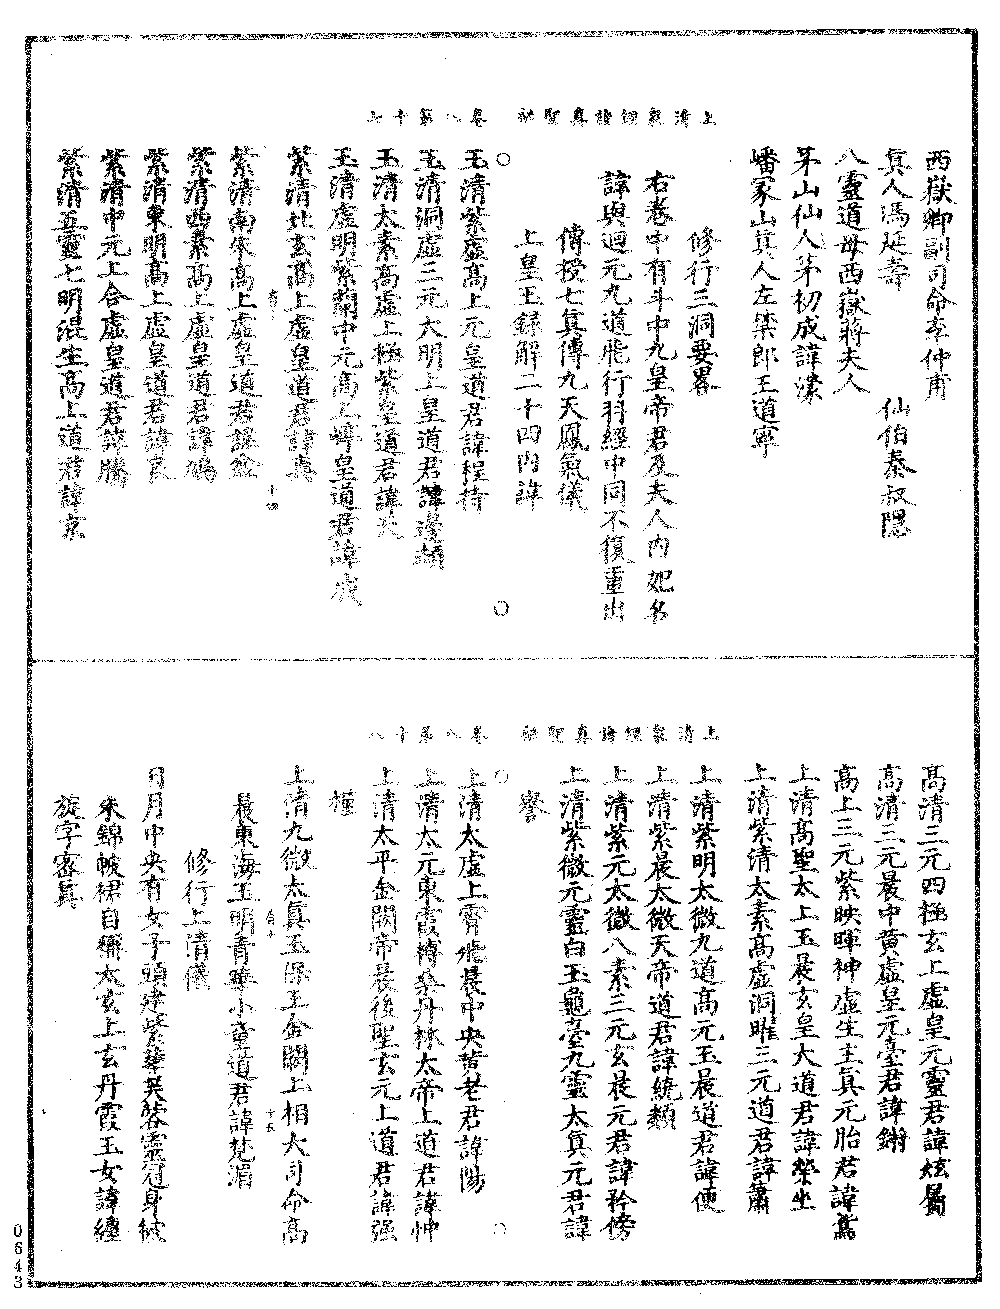 西嶽卿副司命季仲甫
真人馮延壽　　　仙伯秦叔隱
八靈道母西嶽蔣夫人
茅山仙人茅初成諱濛
嶓冢山真人左禁郎王道寧
修行三洞要畧
右卷中有斗中九皇帝君及夫人內妃名
諱與迴元九道飛行羽經中同不復重出
傳授七真傳九天鳳氣儀
上皇玉録解二十四內諱
玉清紫虛高上元皇道君諱程持
玉清洞虛三元太明上皇道君諱邊
玉清太素高虛上極紫皇道君諱
玉清虛明紫蘭中元高上崢皇道君諱
紫清北玄高上虛皇道君諱
紫清南朱高上虛皇道君諱
紫清西素高上虛皇道君諱鳩
紫清東明高上虛皇道君諱良
紫清中元上合虛皇道君諱騰
紫清五靈七明混生高上道君諱京
上清眾經諸真聖祕　卷八第十七
高清三元四極玄上虛皇元靈君諱炫屬
高清三元晨中黃虛皇元臺君諱
高上三元紫映暉神虛生主真元胎君諱
上清高聖太上玉晨玄皇大道君諱
上清紫清太素高虛洞曜三元道君諱蕭
上清紫明太微九道高元玉晨道君諱便
上清紫晨太微天帝道君諱統類
上清紫元太微八素三元玄晨元君諱矜傍
上清紫微元靈白玉龜臺九靈太真元君諱
上清太虛上霄飛晨中央黃老君諱陽
上清太元東霞搏桑丹林太帝上道君諱忡
上清太平金闕帝晨後聖玄元上道君諱强
上清九微太真玉保王金闕上相大司命高
晨東海玉明青華小童道君諱梵湄
修行上清儀
日月中央有女子頭建紫華芙蓉靈冠身披
朱錦帔裙自稱太玄上玄丹霞玉女諱纏
旋字密真
上清眾經諸真聖祕　卷八第十八
0643